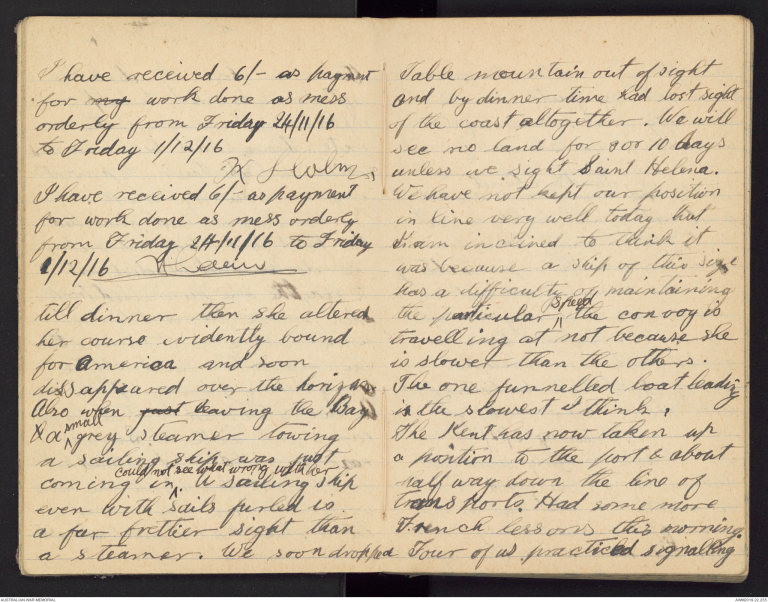 I have received 6/- as payment
for my work done as mess
orderly from Friday 24/11/16
to Friday 1/12/16
K Holm
I have received 6/- as payment
for work done as mess orderly
from Friday 24/11/16 to Friday
1/12/16
till dinner then she altered
her course evidently bound
for America and soon
dissappeared over the horizon
Also when just leaving the Bay
X a small grey steamer towing
a sailing ship was just
coming in, could not see what wrong with her. A sailing ship
even with sails furled is
a far prettier sight than
a steamer. We soon dropped
Table mountain out of sight
and by dinner time had lost sight
of the coast altogether. We will
see no land for 9 or 10 days
unless we sight Saint Helena.
We have not kept our position
in line very well today but
I am inclined to think it
was because a ship of this size
has a difficulty of maintaining
the particular speed the convoy is
travelling at not because she
is slower than the others.
The one funnelled boat leading
is the slowest I think.
The Kent has now taken up
a position to the port & about
half way down the line of
transports. Had some more
French lessons this morning.
Four of us practiced signalling
AUSTRALIAN WAR MEMORIAL